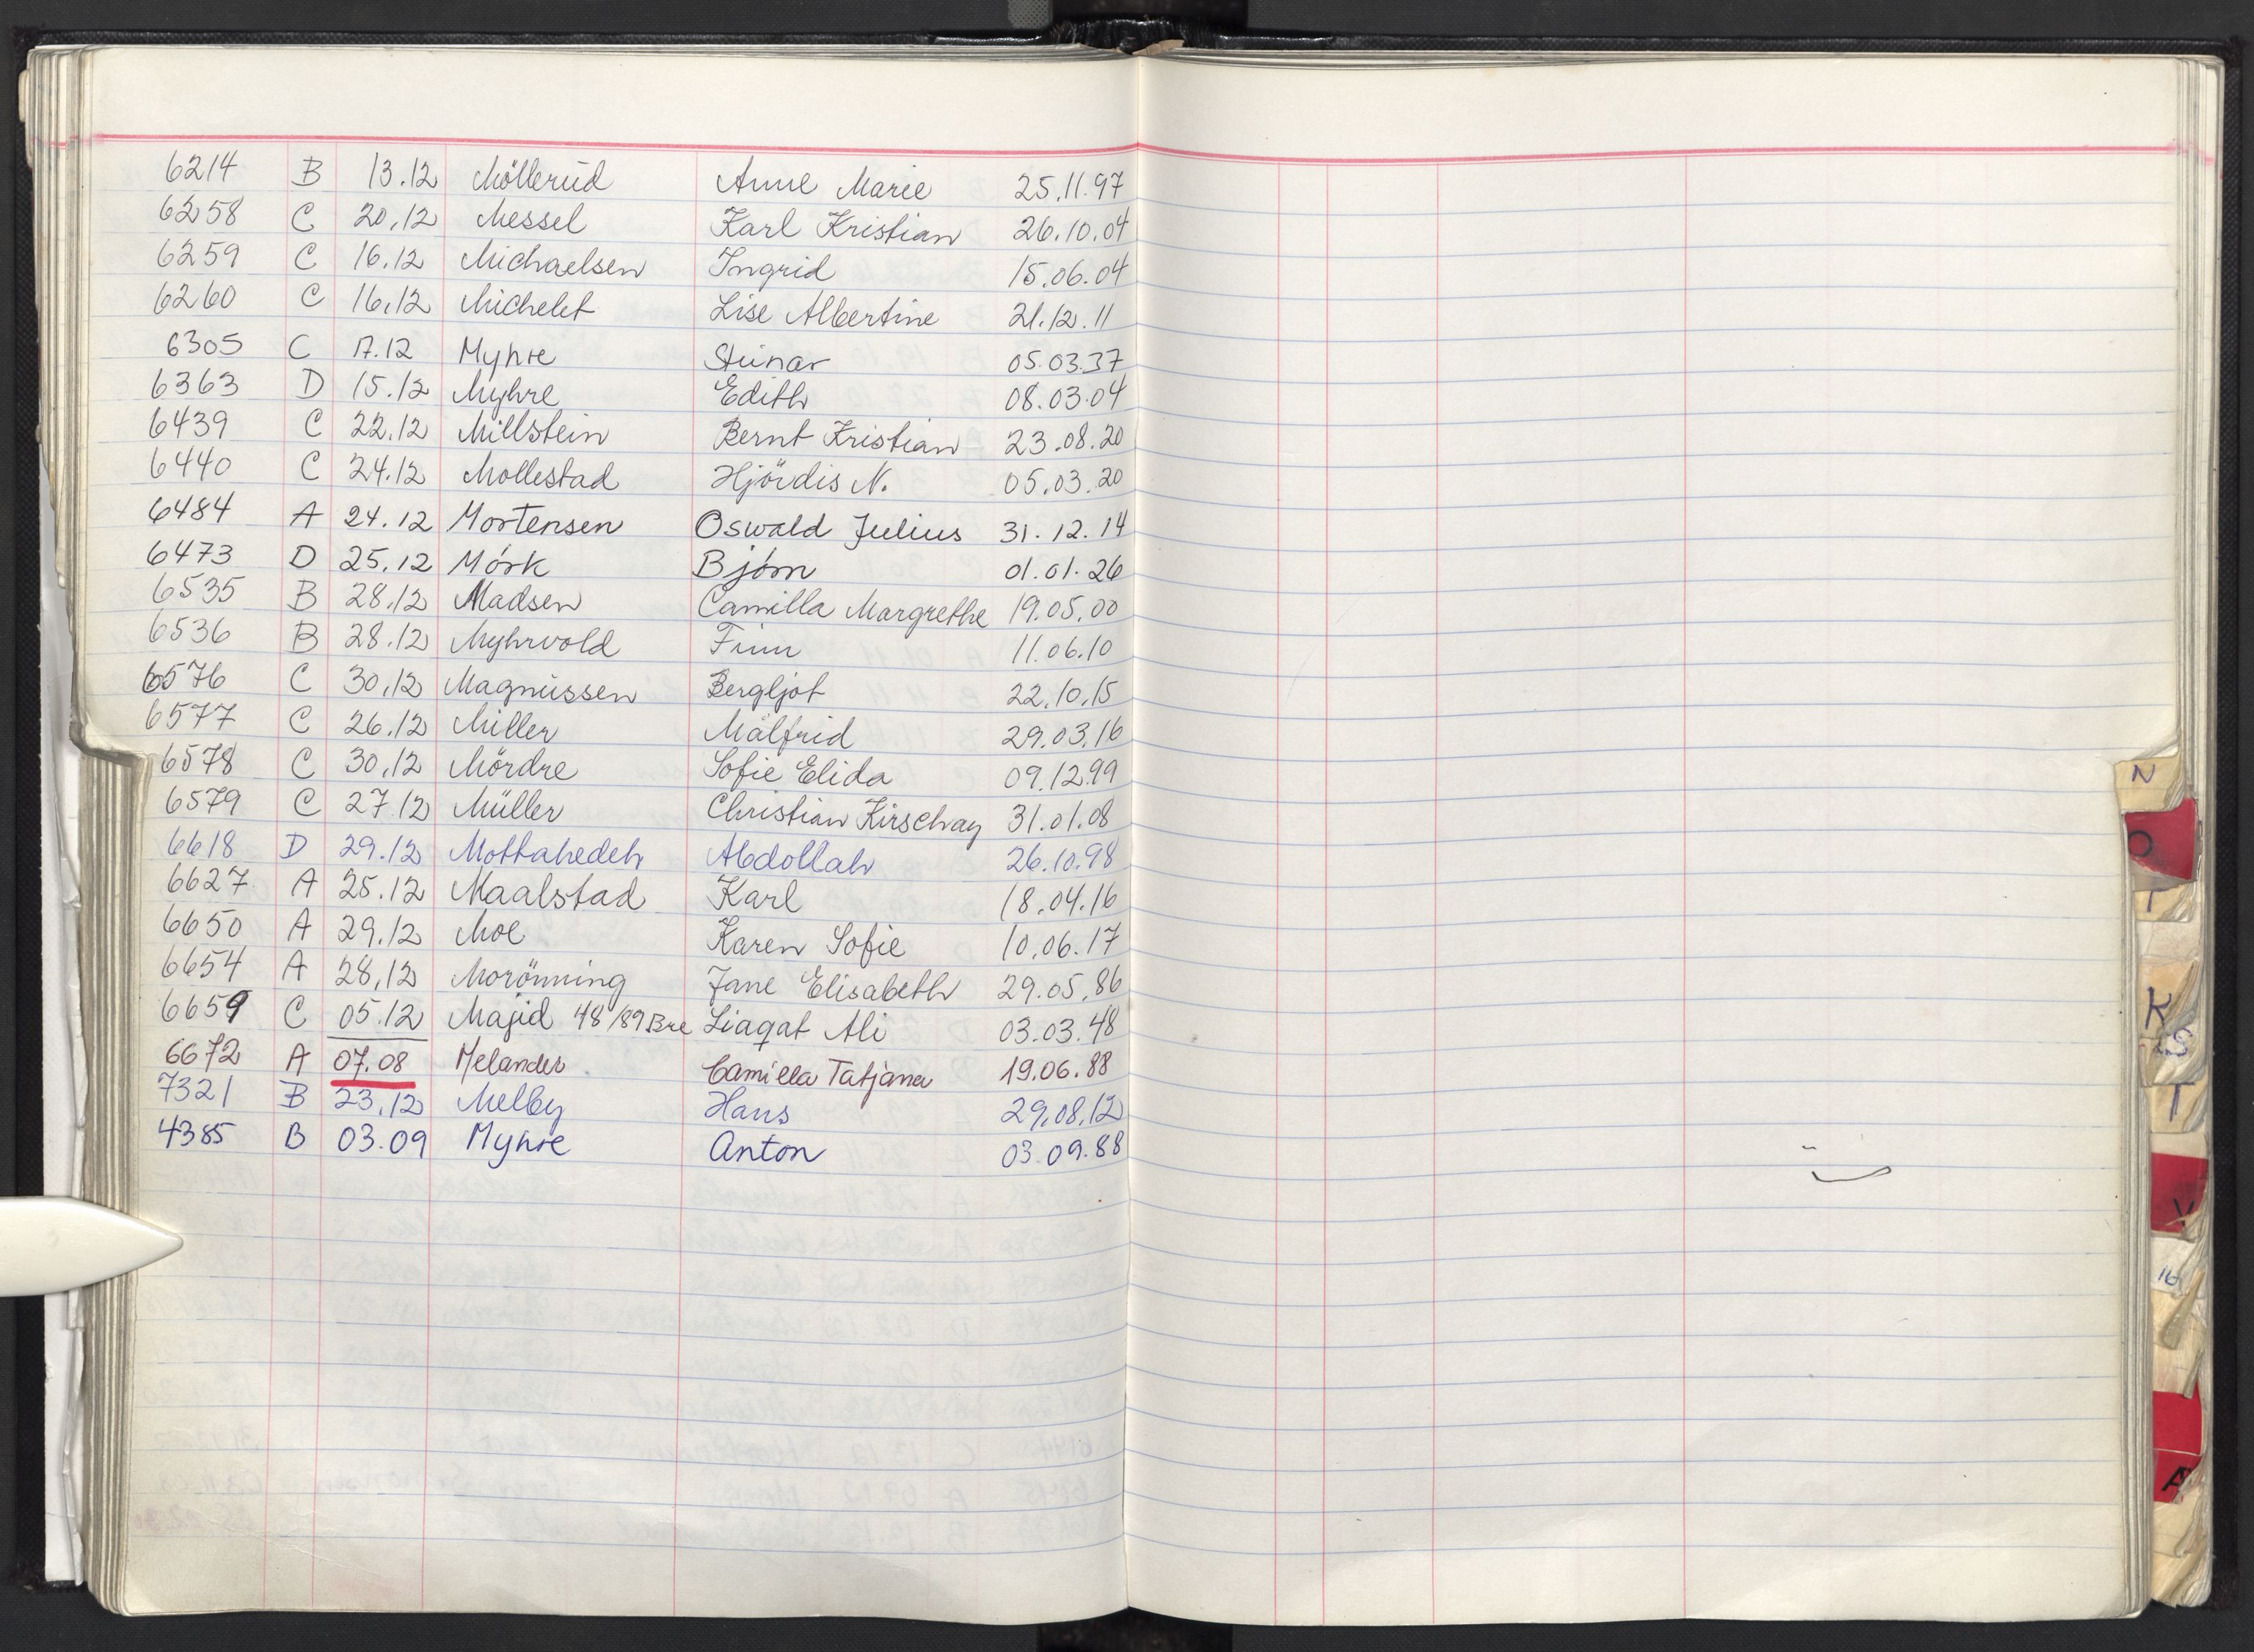 6214 B 13.12 Möllerud Anne Marie 25.11.97
6258 C 20.12 Messel Karl Kristian 26.10.04
6259 C 16.12 Michaelsen Ingrid 15.06.04
6260 C 16.12 Michelet Lise Albertine 21.12.11
6305 C 17.12 Myhre Steinar 05.03.37
6363 D 15.12 Myhre Edith 08.03.04
6439 C 22.12 Millstein Bernt Kristian 23.08.20
6440 C 24.12 Mollestad Hjördis N. 05.03.20
6484 A 24.12 Mortensen Oswald Julius 31.12.14
6473 D 25.12 Mórk Bjórn 01.01.26
6535 B 28.12 Madsen Camilla Margrethe 19.05.00
6536 B 28.12 Myhrvold Finn 11.06.10
6576 C 30.12 Magnussen Bergljot 22.10.15
6577 C 26.12 Miller Målfrid 29.03.16
6578 C 30.12 Mördre Sofie Elida 09.12.99
6579 C 27.12 Müller Christian 31.01.08
6618 D 29.12 Mottahedeh Abdollah 26.10.98
6627 A 25.12 Maalstad Karl 18.04.16
6650 A 29.12 Moe Karen Sofie 10.06.17
6654 A 28.12 Morönning Jane Elisabeth 29.05.86
6659 C 05.12 Majid 48/89 Bre Liaqat Ali 03.03.48
6672 A 07.08 Melander Camilla Tatjana 19.06.88
7321 B 23.12 Melby Hans 29.08.12
4385 B 03.09 Myhre Anton 03.09.88
N
O
K
S
T
V
16